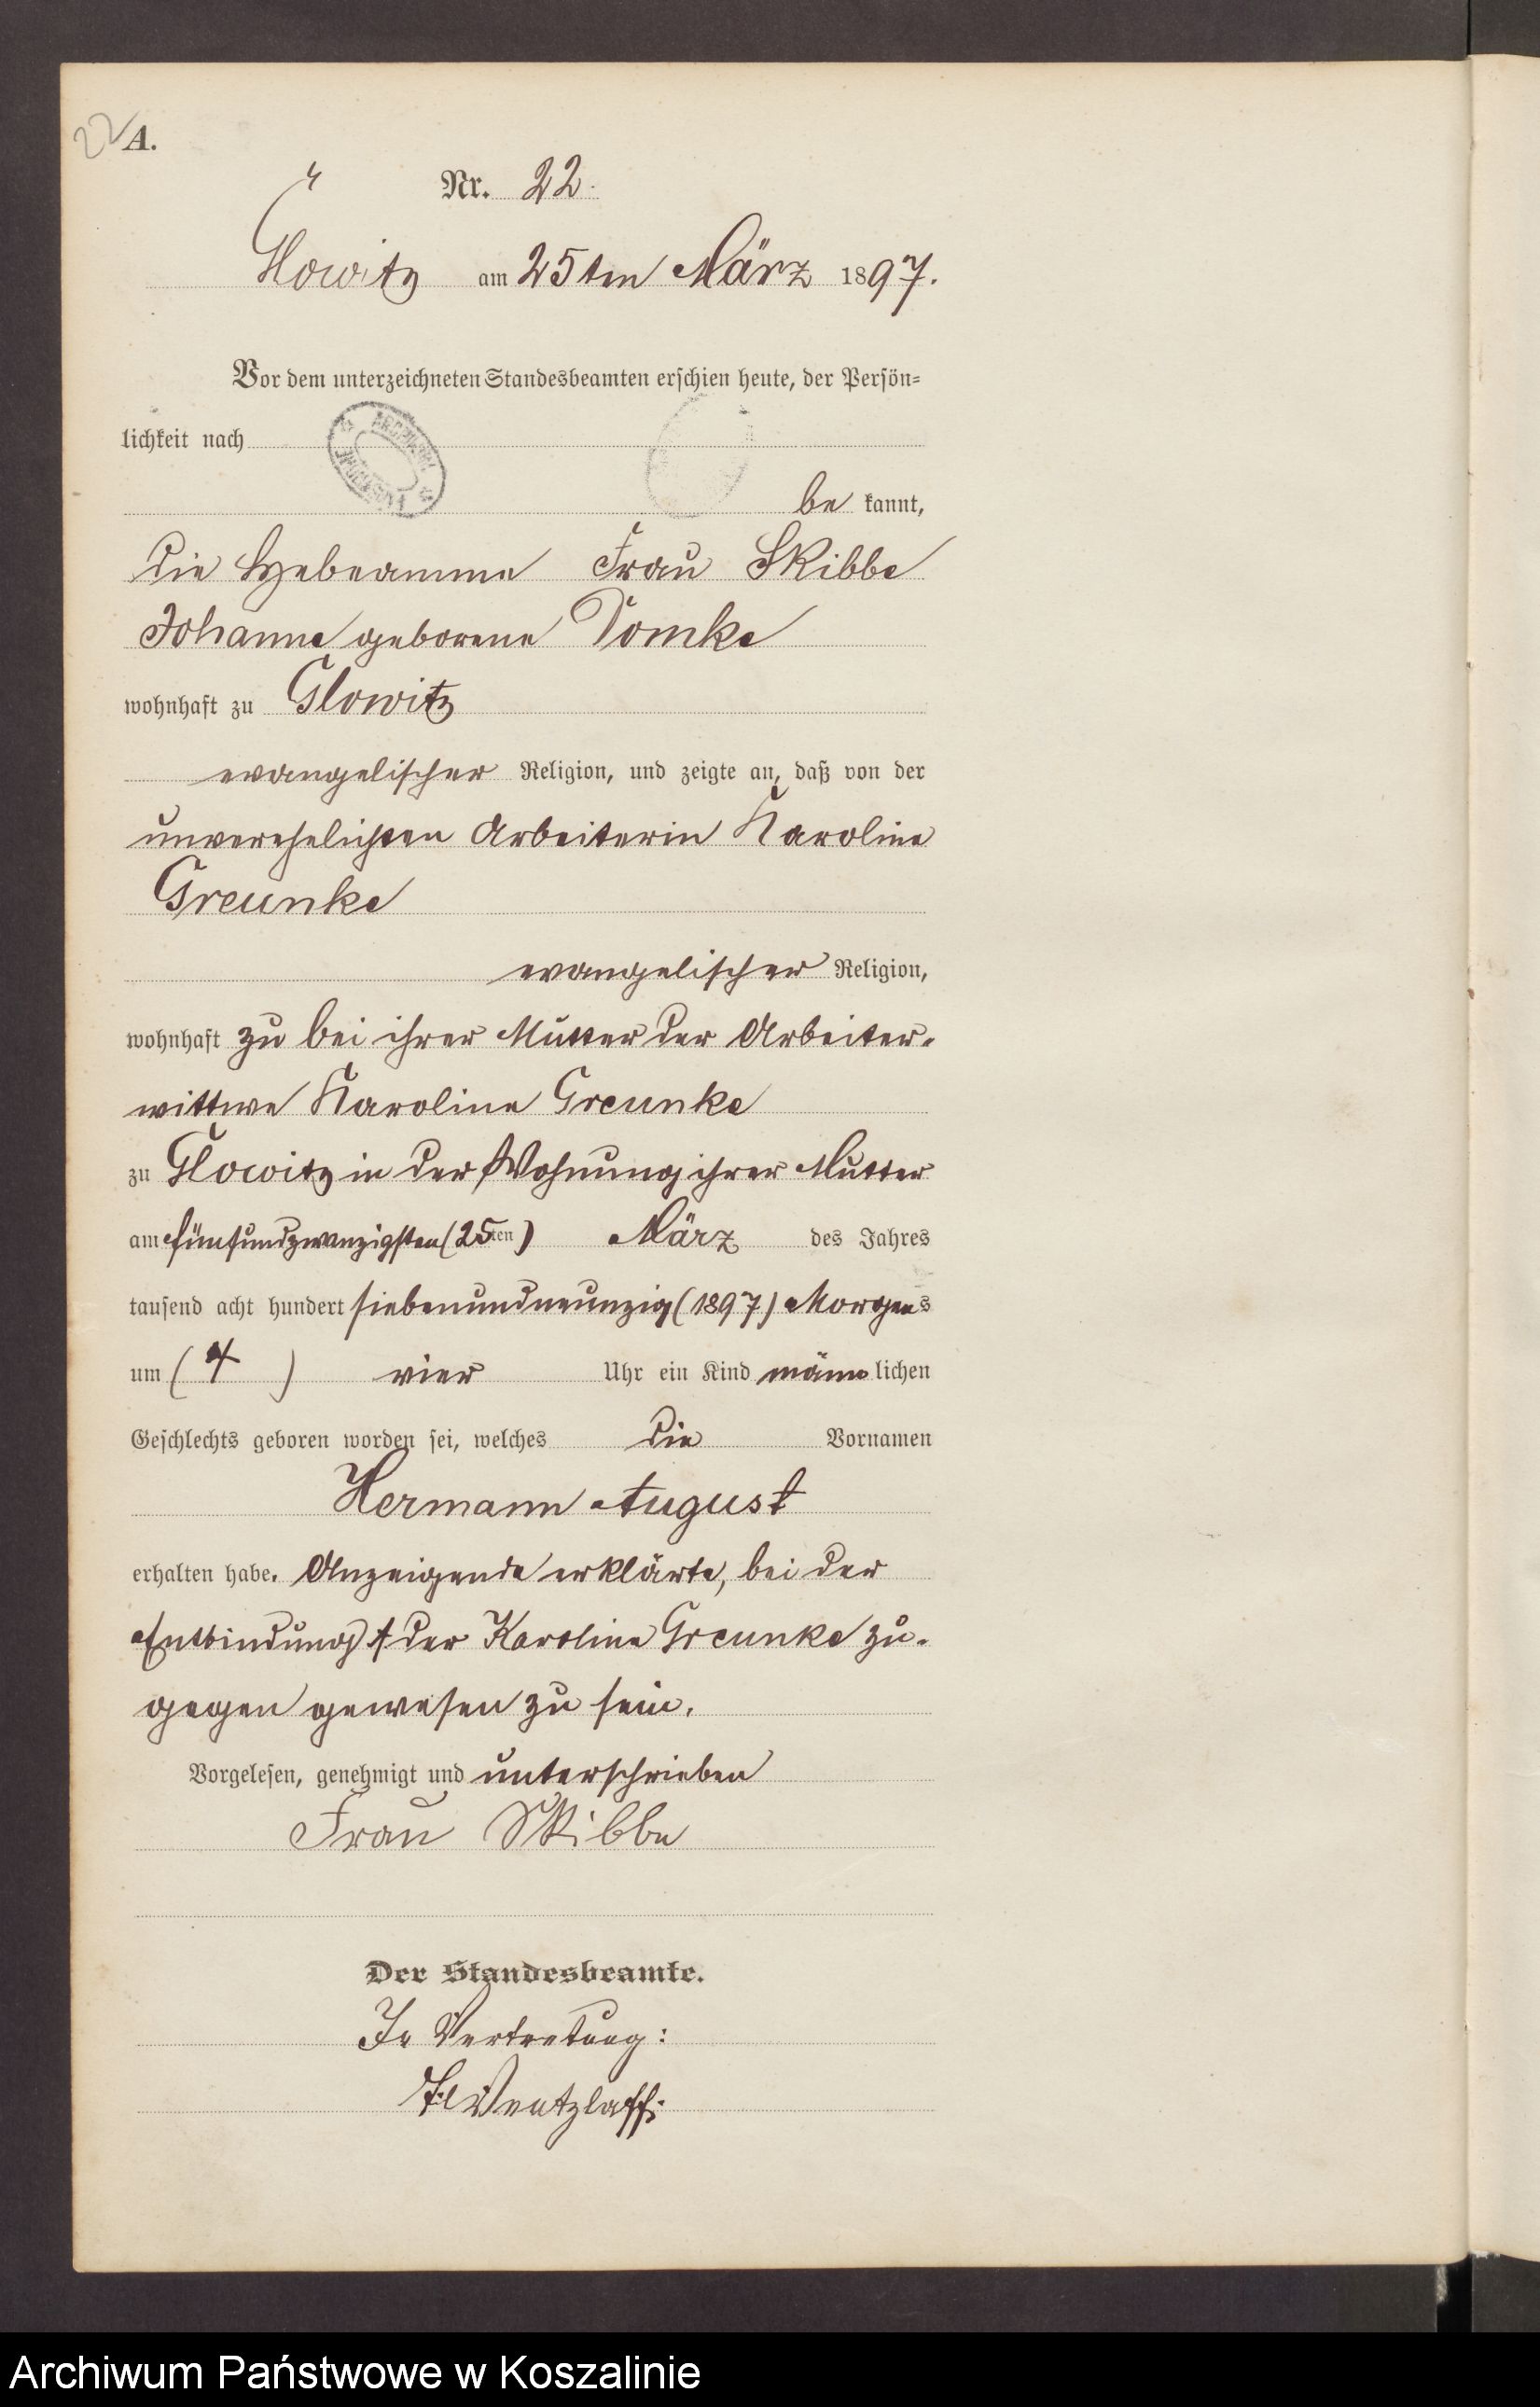 22
A.
Nr. 22.
Glowitz am 25ten März 1897.
Vor dem unterzeichneten Standesbeamten erschien heute, der Persön-
lichkeit nach
be kannt,
die Hebeamme Frau Skibbe
Johanne geborene Domke
wohnhaft zu Glowitz
evangelischer Religion, und zeigte an, daß von der
unverehelichten Arbeiterin Karoline
Greunke
evangelischer Religion,
wohnhaft zu bei ihrer Mutter der Arbeiter-
wittwe Karoline Greunke
zu Glowitz in der Wohnung ihrer Mutter
am fünfundzwanzigsten (25ten) März des Jahres
tausend acht hundert siebenundneunzig (1897) Morgens
um (4) vier Uhr ein Kind männlichen
Geschlechts geboren worden sei, welches die Vornamen
Hermann August
erhalten habe. Anzeigende erklärte, bei der
Entbindung der Karoline Greunke zu-
gegen gewesen zu sein.
Vorgelesen, genehmigt und unterschrieben
Frau Skibbe
Der Standesbeamte.
In Vertretung:
Wentzlaff
Archiwum Państwowe w Koszalinie